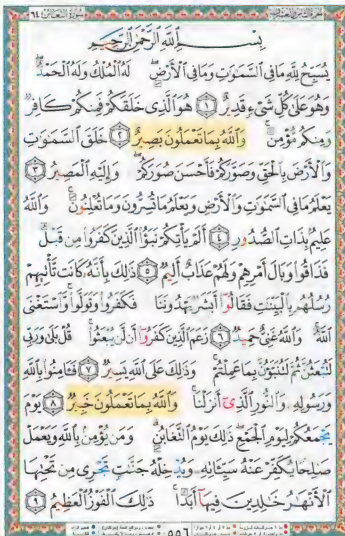 سُورَةُ التَّغَابُنِ ٦٤
بِسْمِ اللَّهِ الرَّحْمَٰنِ الرَّحِيمِ
يُسَبِّحُ لِلَّهِ مَا فِي السَّمَٰوَٰتِ وَمَا فِي الْأَرْضِ ۖ لَهُ الْمُلْكُ وَلَهُ الْحَمْدُ ۖ
وَهُوَ عَلَىٰ كُلِّ شَيْءٍ قَدِيرٌ ١ هُوَ الَّذِي خَلَقَكُمْ فَمِنكُمْ كَافِرٌ
وَمِنكُم مُّؤْمِنٌ ۚ وَاللَّهُ بِمَا تَعْمَلُونَ بَصِيرٌ ٢ خَلَقَ السَّمَٰوَٰتِ
وَالْأَرْضَ بِالْحَقِّ وَصَوَّرَكُمْ فَأَحْسَنَ صُوَرَكُمْ ۖ وَإِلَيْهِ الْمَصِيرُ ٣
يَعْلَمُ مَا فِي السَّمَٰوَٰتِ وَالْأَرْضِ وَيَعْلَمُ مَا تُسِرُّونَ وَمَا تُعْلِنُونَ ۚ وَاللَّهُ
عَلِيمٌ بِذَاتِ الصُّدُورِ ٤ أَلَمْ يَأْتِكُمْ نَبَؤُا الَّذِينَ كَفَرُوا مِن قَبْلُ
فَذَاقُوا وَبَالَ أَمْرِهِمْ وَلَهُمْ عَذَابٌ أَلِيمٌ ٥ ذَٰلِكَ بِأَنَّهُ كَانَت تَّأْتِيهِمْ
رُسُلُهُم بِالْبَيِّنَٰتِ فَقَالُوا أَبَشَرٌ يَهْدُونَنَا فَكَفَرُوا وَتَوَلَّوا ۚ وَّاسْتَغْنَى
اللَّهُ ۚ وَاللَّهُ غَنِيٌّ حَمِيدٌ ٦ زَعَمَ الَّذِينَ كَفَرُوا أَن لَّن يُبْعَثُوا ۚ قُلْ بَلَىٰ وَرَبِّي
لَتُبْعَثُنَّ ثُمَّ لَتُنَبَّؤُنَّ بِمَا عَمِلْتُمْ ۚ وَذَٰلِكَ عَلَى اللَّهِ يَسِيرٌ ٧ فَـَٔامِنُوا بِاللَّهِ
وَرَسُولِهِ وَالنُّورِ الَّذِي أَنزَلْنَا ۚ وَاللَّهُ بِمَا تَعْمَلُونَ خَبِيرٌ ٨ يَوْمَ
يَجْمَعُكُمْ لِيَوْمِ الْجَمْعِ ۖ ذَٰلِكَ يَوْمُ التَّغَابُنِ ۗ وَمَن يُؤْمِن بِاللَّهِ وَيَعْمَلْ
صَٰلِحًا يُكَفِّرْ عَنْهُ سَيِّـَٔاتِهِ وَيُدْخِلْهُ جَنَّٰتٍ تَجْرِي مِن تَحْتِهَا
الْأَنْهَٰرُ خَٰلِدِينَ فِيهَا أَبَدًا ۚ ذَٰلِكَ الْفَوْزُ الْعَظِيمُ ٩
٥٥٦